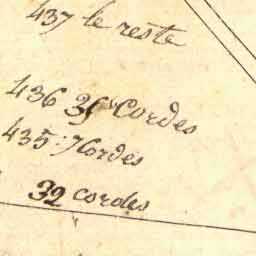 437 le reste
436 35 Cordes
435 : 7 Cordes
32 cordes